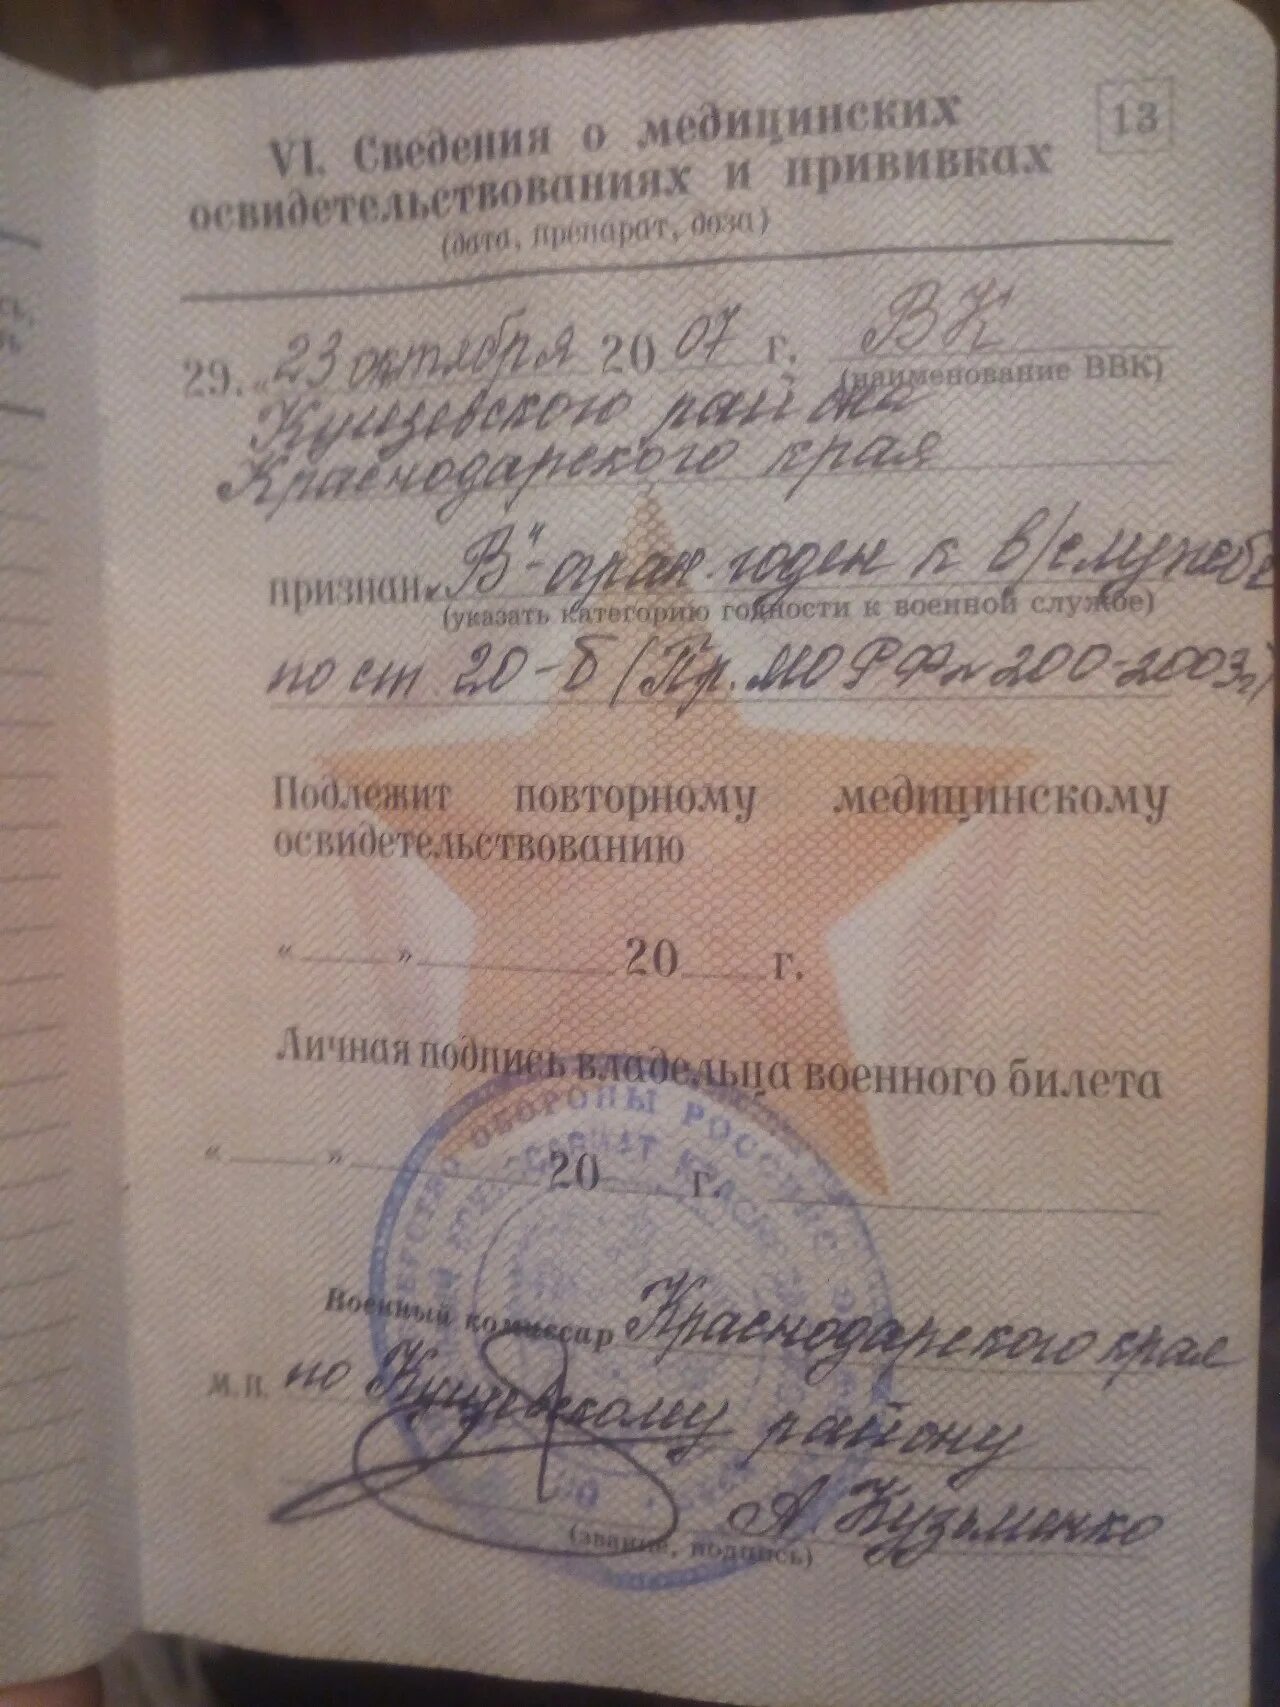 13
VI. Сведения о медицинских
освидетельствованиях и прививках
(дата, препарат, доза)
29. „ 23 октября 2007 г. ВК
(наименование ВВК)
Кущевского района
Краснодарского края
признан „В"-огран. годен к в/службе
(указать категорию годности к военной службе)
по ст 20-б (Пр. МО РФ № 200-2003г)
Подлежит повторному медицинскому
освидетельствованию
« » 20 г.
Личная подпись владельца военного билета
« » 20 г.
ОБОРОНЫ РОССИЙС
Военный комиссар Краснодарского края
М.П. по Кущевскому району
А. Кузьменко
(звание, подпись)